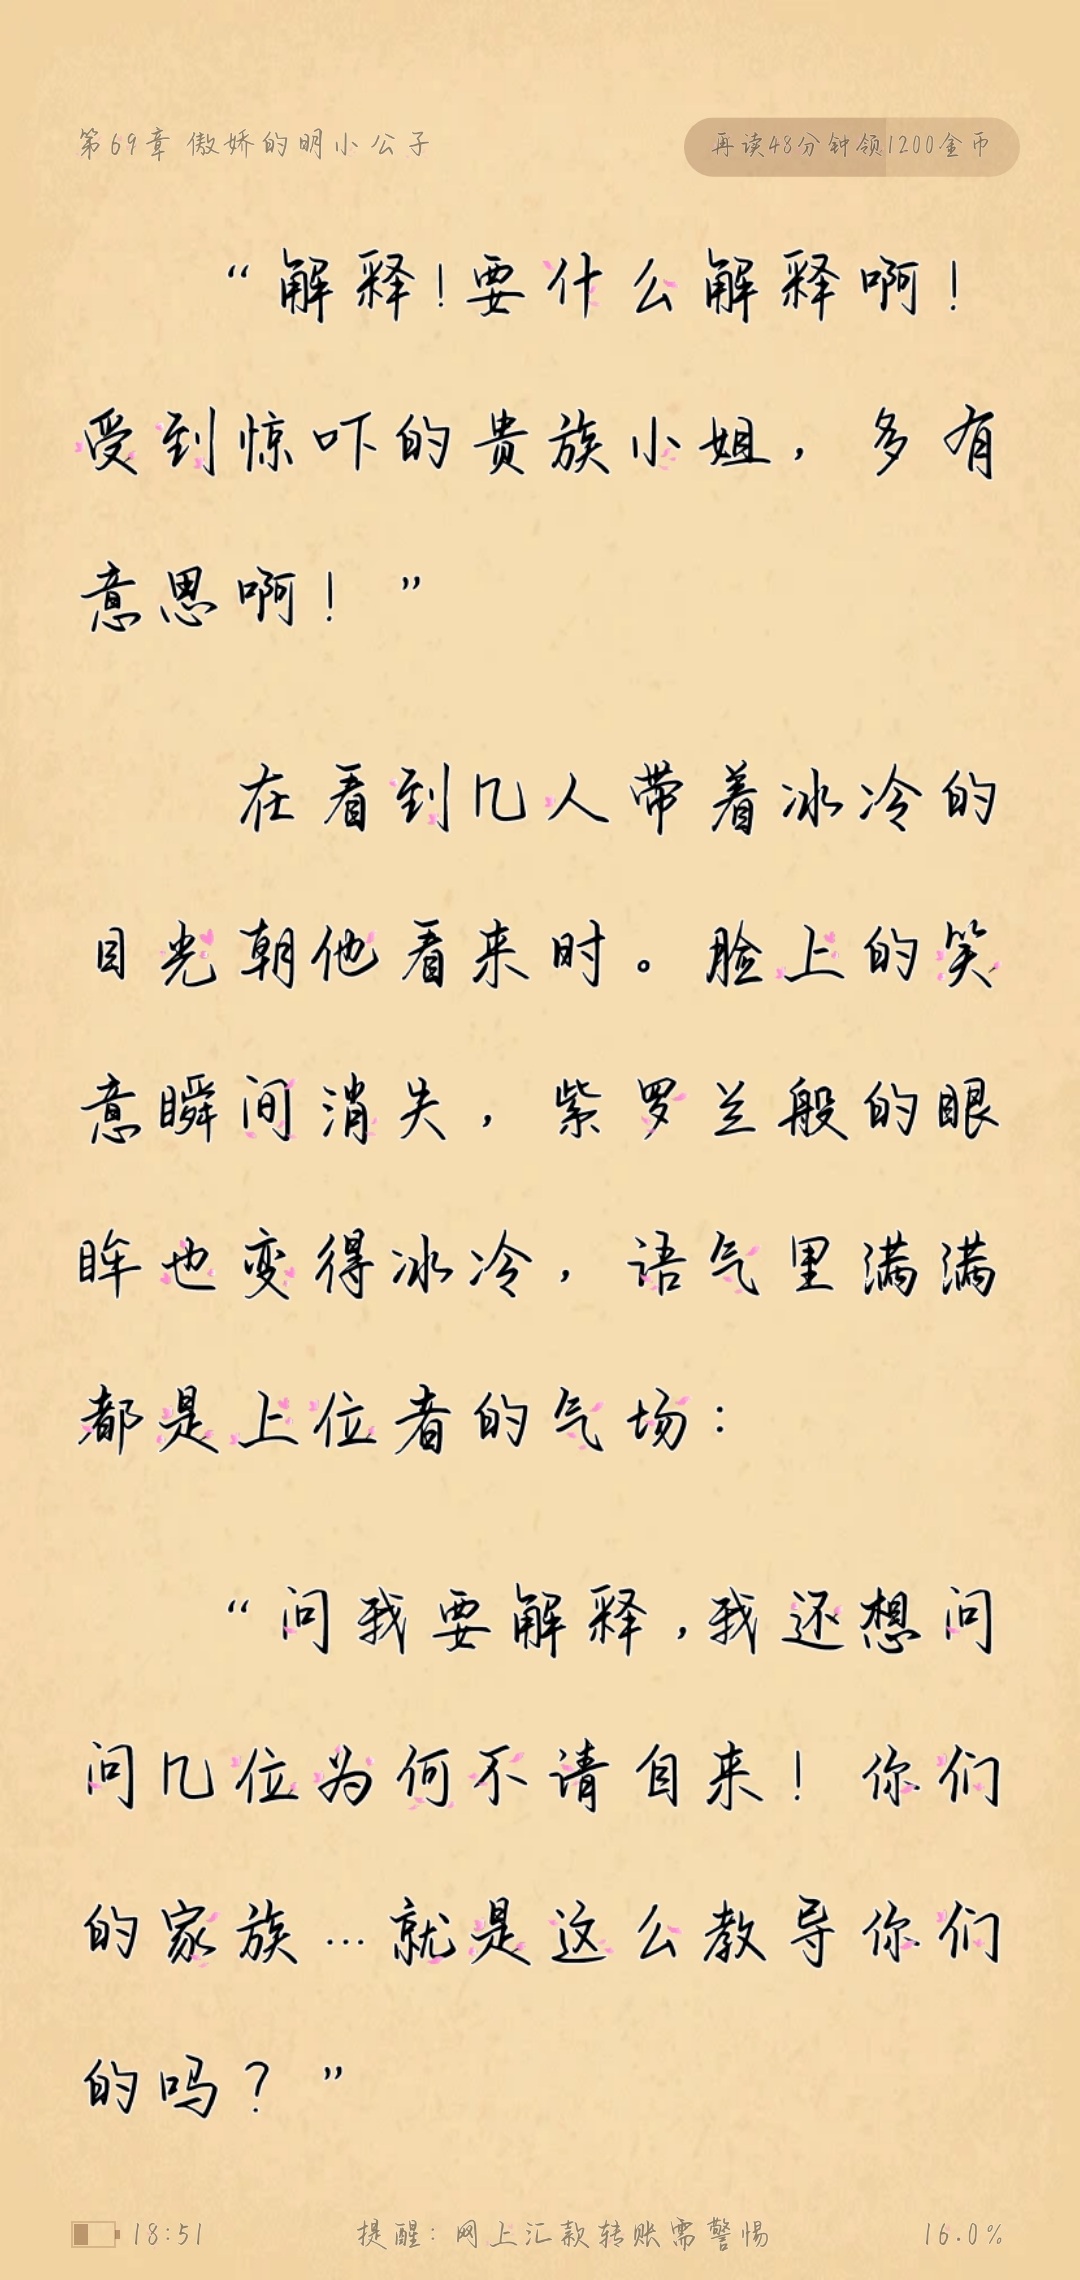 第69章 傲娇的明小公子
再读48分钟领1200金币
“解释！要什么解释啊！
受到惊吓的贵族小姐，多有
意思啊！”
在看到几人带着冰冷的
目光朝他看来时。脸上的笑
意瞬间消失，紫罗兰般的眼
眸也变得冰冷，语气里满满
都是上位者的气场：
“问我要解释，我还想问
问几位为何不请自来！你们
的家族…就是这么教导你们
的吗？”
18:51
提醒：网上汇款转账需警惕
16.0%